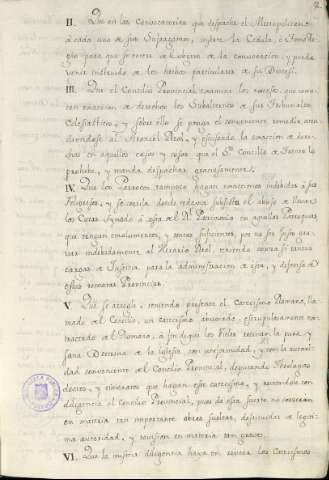 2
II. Que en las Convocatorias que despache el Metropolitano
á cada uno de sus Sufraganeos, inserte la Cedula, ó Tomo Re-
gio para que se entere de el objeto de la convocacion, y pueda
venir instruido de los hechos particulares de su Diocesi.
III. Que el Concilio Provincial examine los excesos, que come-
ten exaccion de derechos los Subalternos de sus Tribunales
Eclesiasticos, y sobre ello se ponga el conveniente remedio, aten-
diendose al Arancel Real, y escusando la exaccion de dere-
chos en aquellos casos y cosas que el Sto. Concilio de Trento lo
prohibe, y manda despachar graciosamente.
IV. Que los Parrocos tampoco hagan exacciones indebidas á sus
Feligreses, y se corrija donde todavia subsista el abuso de llevar
los Curas Synodo á costa de el Rl. Patrimonio en aquellas Parroquias
que tengan emolumentos, y rentas suficientes, por no ser justo gra-
var indebidamente al Herario Real, teniendo contra sí tantas
cargas de Justicia, para la administracion de esta, y defensa de
estas remotas Provincias.
V. Que se arregle, teniendo presente el Catecismo Romano, lla-
mado de el Concilio, un catecismo abreviado, escrupulosamente con-
tractado de el Romano, á fin de que los Fieles reciban la pura y
sana Doctrina de la Iglesia, con uniformidad, y con la autori-
dad conveniente del Concilio Provincial, deputando Teologos
doctos, y timoratos que hagan este catecismo, y autorizado con
diligencia el Concilio Provincial, pues de esta suerte no correrán
en materia tan importante obras sueltas, destituidas de legiti-
ma autoridad, y revision en materia tan grave.
VI. Que la misma diligencia haya con receta los Catecismos